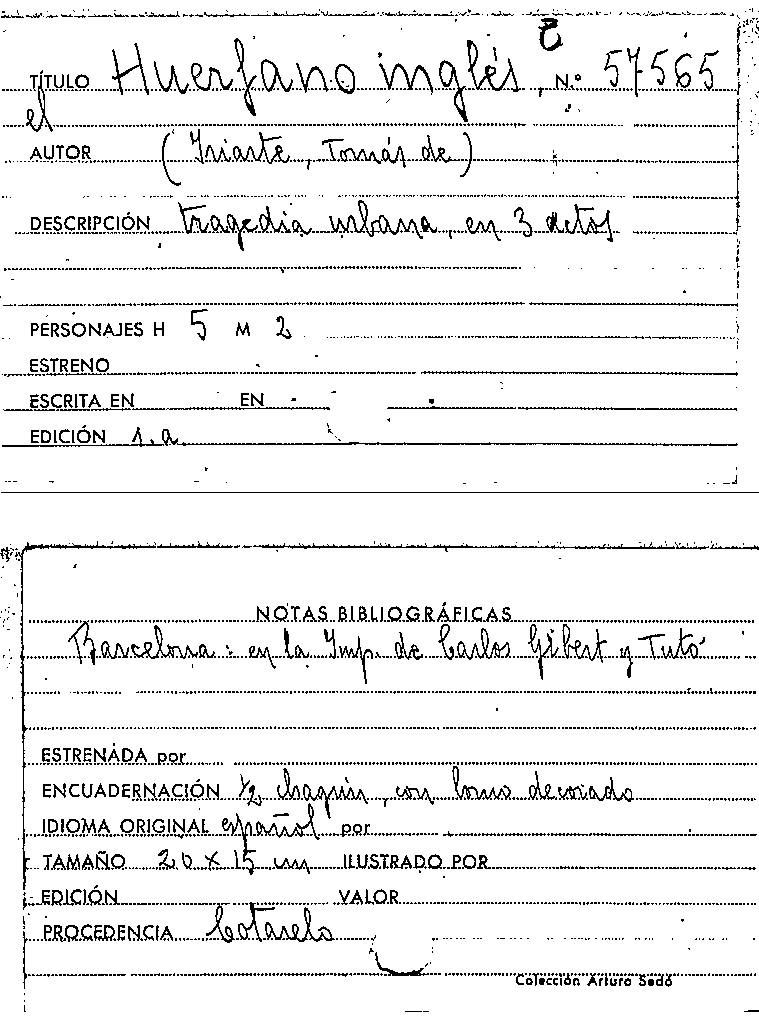 TÍTULO Huerfano inglés, N.º 57565
el
AUTOR (Iriarte, Tomás de)
DESCRIPCIÓN tragedia urbana, en 3 actos
PERSONAJES H 5 M 2
ESTRENO
ESCRITA EN EN
EDICIÓN s.a.
NOTAS BIBLIOGRÁFICAS
Barcelona: en la Imp. de Carlos Gibert y Tutó
ESTRENADA por
ENCUADERNACIÓN 1/2 chagrín, con lomo decorado
IDIOMA ORIGINAL español por
TAMAÑO 20 x 15 cm ILUSTRADO POR
EDICIÓN VALOR
PROCEDENCIA Cotarelo
Colección Arturo Sedó